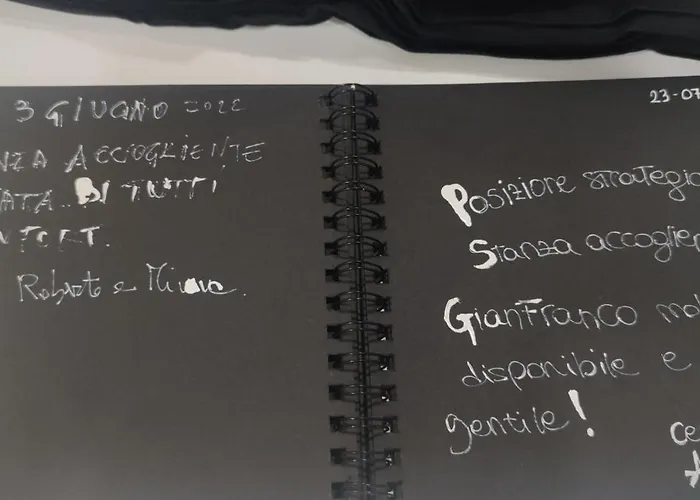 3 GIUGNO 2022
NZA ACCOGLIENTE
ATA DI TUTTI
NFORT.
Roberto e
23-07
Posizione strategic
Stanza accoglien
GianFranco mo
disponibile e
gentile!
Ce
A